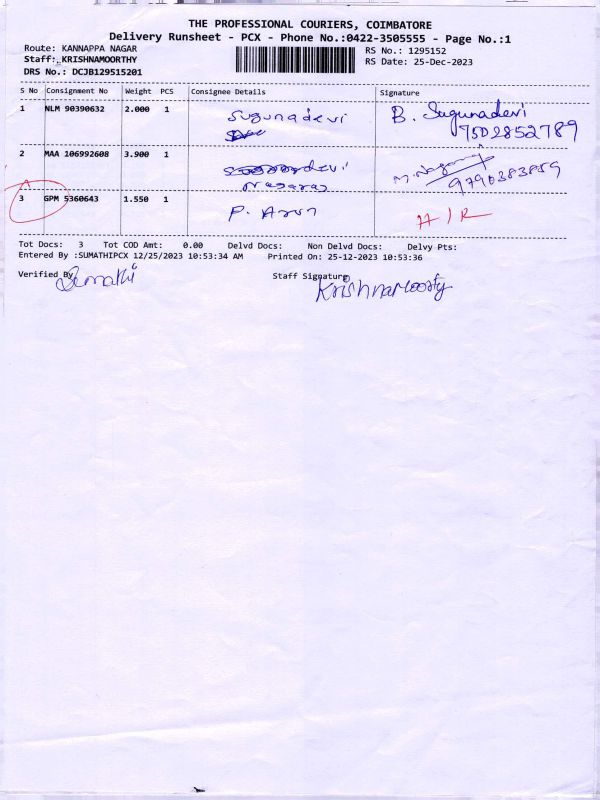 THE PROFESSIONAL COURIERS, COIMBATORE
Delivery Runsheet - PCX - Phone No.:0422-3505555 - Page No.:1
Route: KANNAPPA NAGAR
RS No.: 1295152
Staff: KRISHNAMOORTHY
RS Date: 25-Dec-2023
DRS No.: DCJB129515201
S No Consignment No Weight PCS Consignee Details Signature
1 NLM 90390632 2.000 1 Sugunadevi B. Sugunadevi
7502852789
2 MAA 106992608 3.900 1
Nagaraj 9790383859
3 GPM 5360643 1.550 1 P. Arun A/R
Tot Docs: 3 Tot COD Amt: 0.00 Delvd Docs: Non Delvd Docs: Delvy Pts:
Entered By :SUMATHIPCX 12/25/2023 10:53:34 AM Printed On: 25-12-2023 10:53:36
Verified By Sumathi Staff Signature KrishnaMoorty